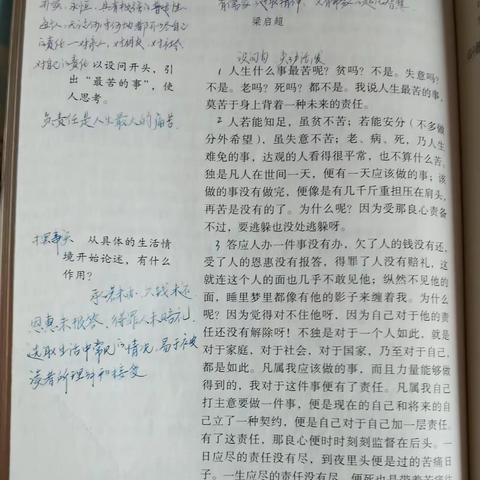 梁启超
设问句
对自己负责任 以设问开头，引
出“最苦的事”，使
人思考。
负责任是人生最大的痛苦
从具体的生活情
境开始论述，有什么
作用？
恩惠未报答、得罪人未赔礼
选取生活中常见的情况，易于被
读者所理解和接受
1 人生什么事最苦呢？贫吗？不是。失意吗？
不是。老吗？死吗？都不是。我说人生最苦的事，
莫苦于身上背着一种未来的责任。
2 人若能知足，虽贫不苦；若能安分（不多做
分外希望），虽失意不苦；老、病、死，乃人生
难免的事，达观的人看得很平常，也不算什么苦。
独是凡人在世间一天，便有一天应该做的事；该
做的事没有做完，便像是有几千斤重担压在肩头，
再苦是没有的了。为什么呢？因为受那良心责备
不过，要逃躲也没处逃躲呀。
3 答应人办一件事没有办，欠了人的钱没有还，
受了人的恩惠没有报答，得罪了人没有赔礼，这
就连这个人的面也几乎不敢见他；纵然不见他的
面，睡里梦里都像有他的影子来缠着我。为什么
呢？因为觉得对不住他呀，因为自己对于他的责
任还没有解除呀！不独是对于一个人如此，就是
对于家庭，对于社会，对于国家，乃至对于自己，
都是如此。凡属我应该做的事，而且力量能够做
得到的，我对于这件事便有了责任。凡属我自己
打主意要做一件事，便是现在的自己和将来的自己
立了一种契约，便是自己对于自己加一层责任。
有了这责任，那良心便时时刻刻监督在后头。一
日应尽的责任没有尽，到夜里头便是过的苦痛日
子。一生应尽的责任没有尽，便死也是带着苦痛往